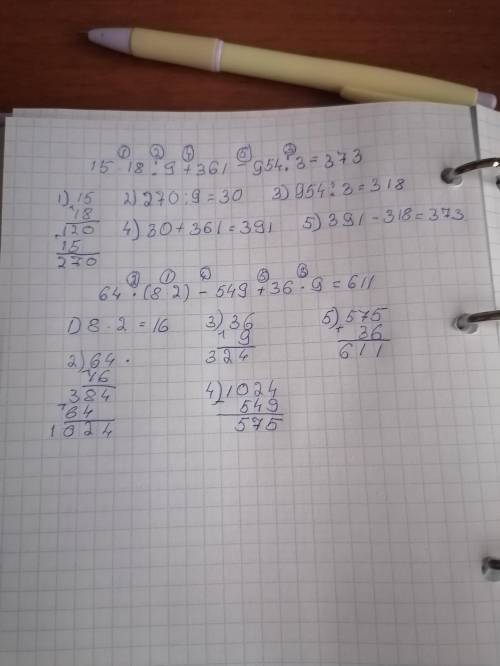 ① ② ④ ⑤ ③
15 · 18 : 9 + 361 - 954 : 3 = 373
1) 15 2) 270 : 9 = 30 3) 954 : 3 = 318
18 4) 30 + 361 = 391 5) 391 - 318 = 373
+ 120
15
270
② ① ④ ⑤ ③
64 · (8 · 2) - 549 + 36 · 9 = 611
1) 8 · 2 = 16 3) 36 5) 575
9 + 36
324 611
2) 64 ·
16
+ 384
64
1024
4) 1024
- 549
575